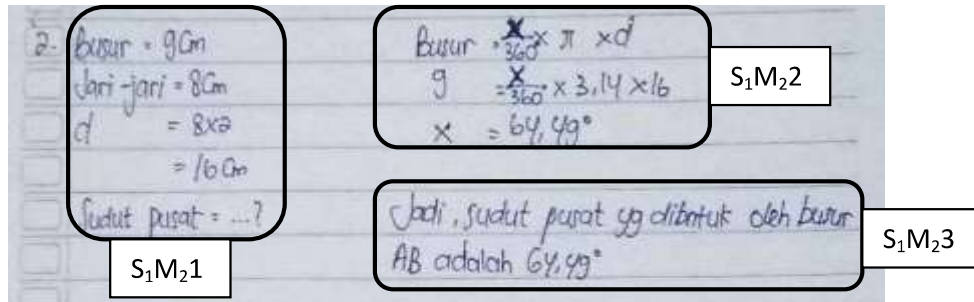 2. Busur = 9 Cm
Jari-jari = 8 Cm
d = 8x2
= 16 Cm
Sudut pusat = ...?
S₁M₂1
Busur = x/360° x π x d
9 = x/360° x 3,14 x 16
x = 64,49°
S₁M₂2
Jadi, sudut pusat yg dibntuk oleh busur
AB adalah 64,49°
S₁M₂3